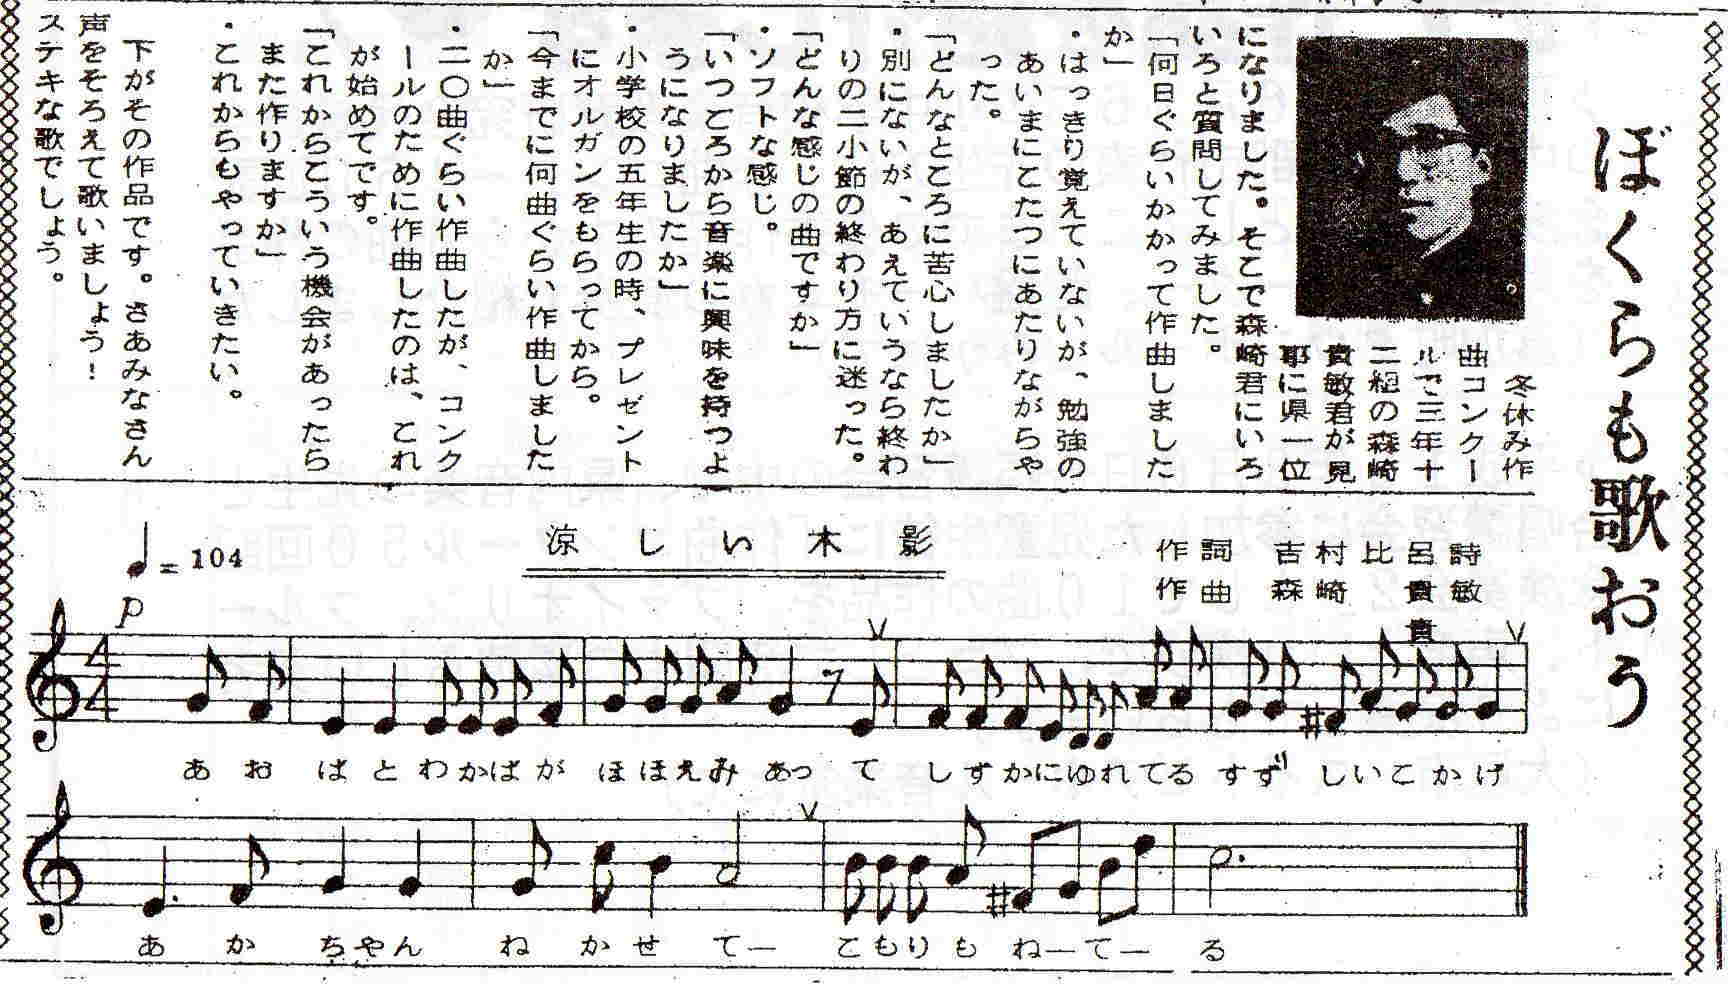 ぼくらも歌おう
冬休み作
曲コンクー
ルで三年十
二組の森崎
貴敏君が見
事に県一位
になりました。そこで森崎君にいろ
いろと質問してみました。
「何日ぐらいかかって作曲しました
か」
・はっきり覚えていないが、勉強の
あいまにこたつにあたりながらや
った。
「どんなところに苦心しましたか」
・別にないが、あえていうなら終わ
りの二小節の終わり方に迷った。
「どんな感じの曲ですか」
・ソフトな感じ。
「いつごろから音楽に興味を持つよ
うになりましたか」
・小学校の五年生の時、プレゼント
にオルガンをもらってから。
「今までに何曲ぐらい作曲しました
か」
・二〇曲ぐらい作曲したが、コンク
ールのために作曲したのは、これ
が始めてです。
「これからこういう機会があったら
また作りますか」
・これからもやっていきたい。
下がその作品です。さあみなさん
声をそろえて歌いましょう!
ステキな歌でしょう。
涼しい木影
作詞 吉村比呂詩
作曲 森崎貴敏
貴
♩= 104
p
4/4
あお はとわかばが ほほえみ あっ て しずかにゆれてる すず しいこかげ
あ か ちゃん ね か せ て— こもりも ね—て— る